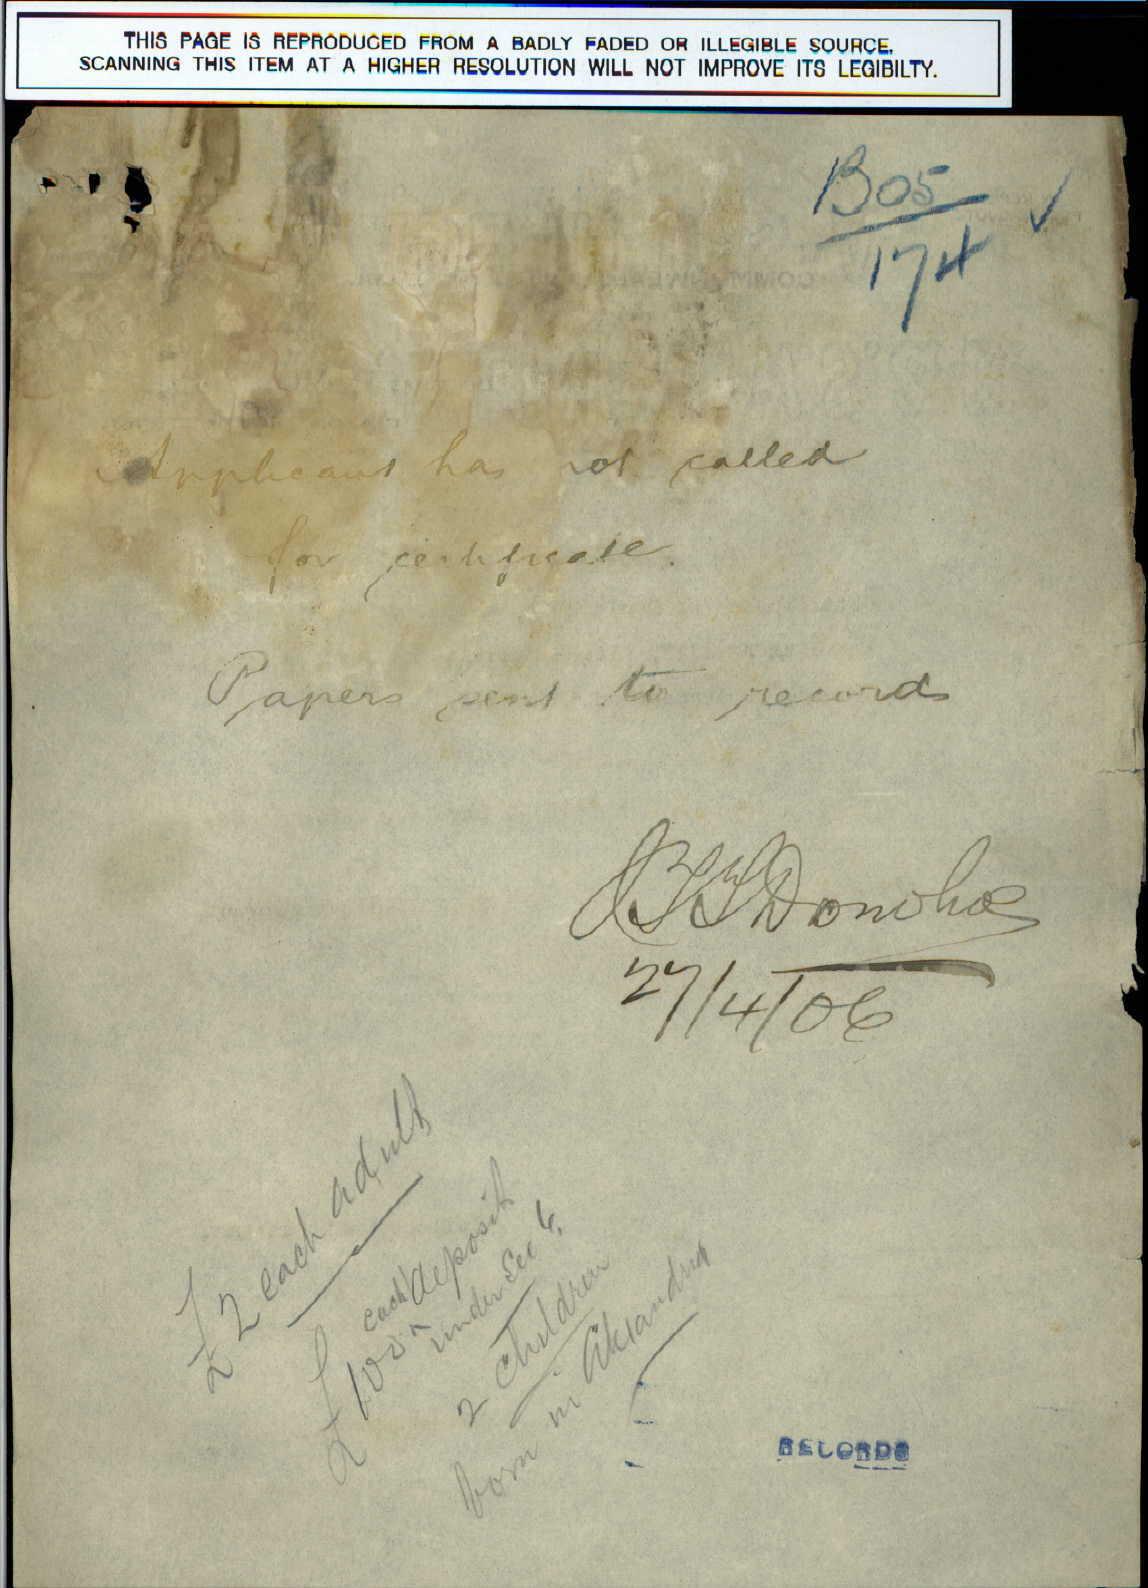 THIS PAGE IS REPRODUCED FROM A BADLY FADED OR ILLEGIBLE SOURCE.
SCANNING THIS ITEM AT A HIGHER RESOLUTION WILL NOT IMPROVE ITS LEGIBILTY.
B05
174
Applicant has not called
for certificate.
Papers sent to records
Donohoe
27/4/06
£2 each adult
£100 each deposit
under Sec 6.
2 children
born in Alexandria
RECORDS